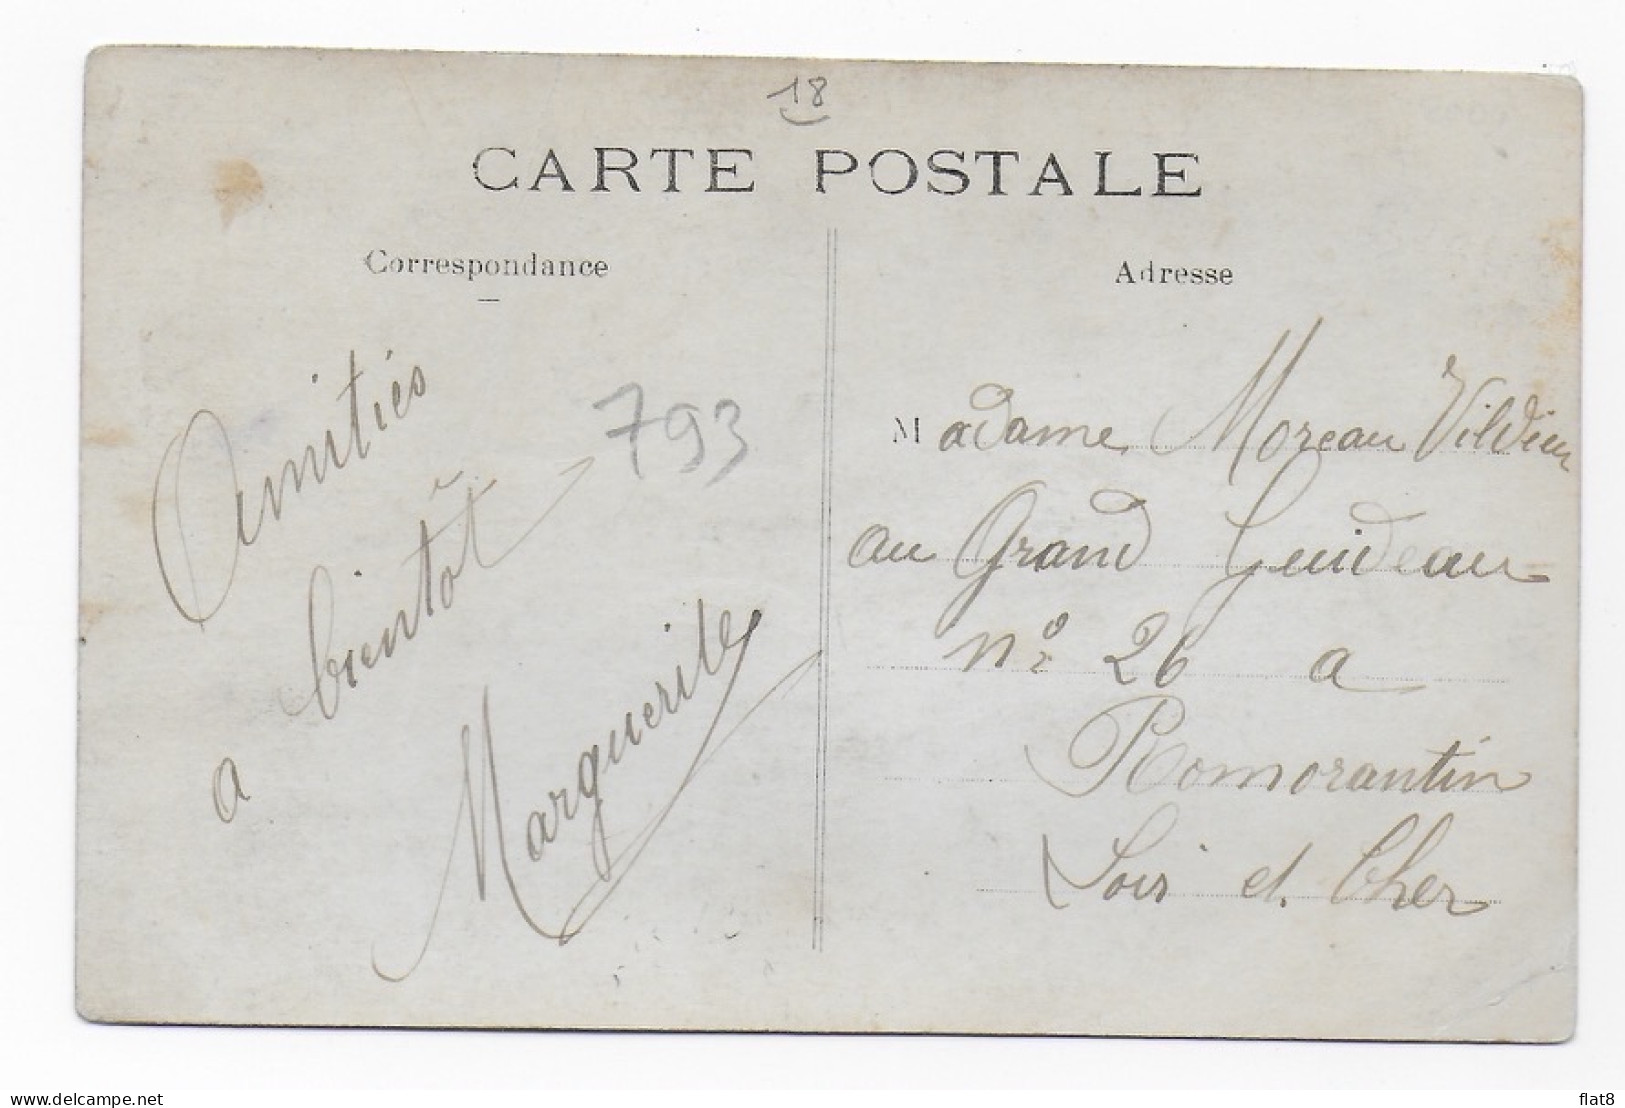 18
CARTE POSTALE
Correspondance
Adresse
Amitiés
a bientôt
Marguerite
793
Madame Moreau Vildieu
au Grand Guideau
n° 26 a
Romorantin
Loir et Cher
www.delcampe.net
flat8